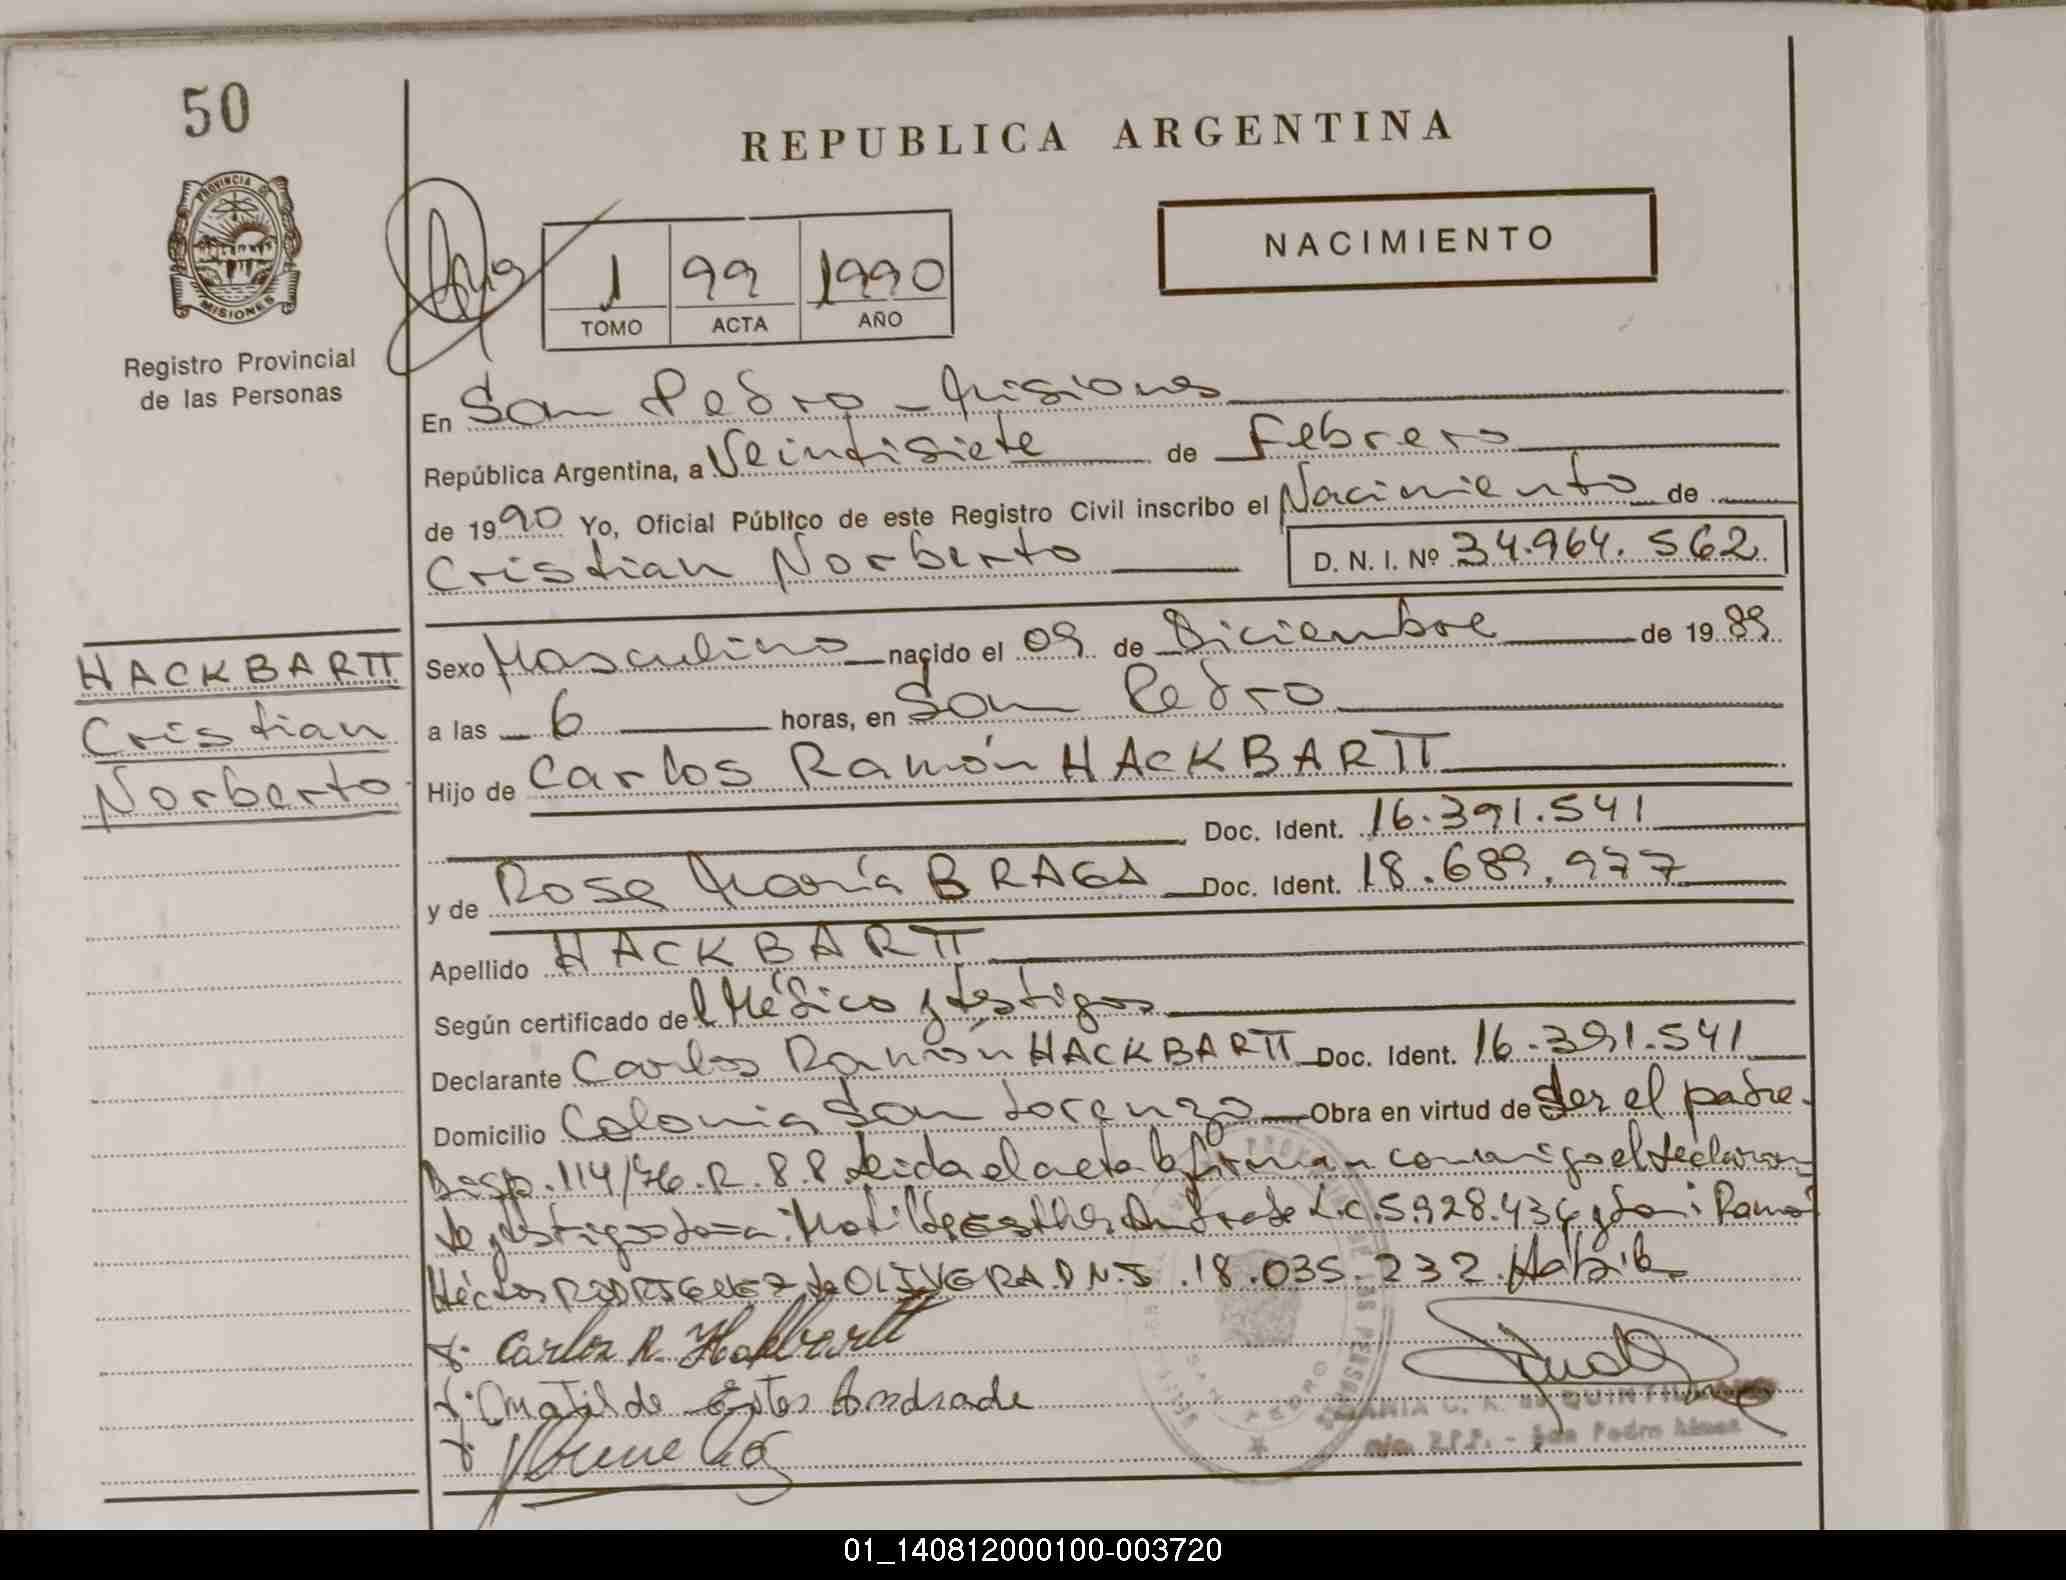 50
REPUBLICA ARGENTINA
PROVINCIA DE
MISIONES
Registro Provincial
de las Personas
NACIMIENTO
1 99 1990
TOMO ACTA AÑO
En San Pedro - Misiones
República Argentina, a Veintisiete de Febrero
de 1990 Yo, Oficial Público de este Registro Civil inscribo el Nacimiento de
Cristian Norberto D. N. I. Nº 34.964.562
HACKBARTT
Cristian
Norberto
Sexo Masculino nacido el 09 de Diciembre de 1989
a las 6 horas, en San Pedro
Hijo de Carlos Ramón HACKBARTT
Doc. Ident. 16.391.541
y de Rosa María BRAGA Doc. Ident. 18.689.977
Apellido HACKBARTT
Según certificado del Médico y testigos
Declarante Carlos Ramón HACKBARTT Doc. Ident. 16.391.541
Domicilio Colonia San Lorenzo Obra en virtud de ser el padre.
Disp. 114/76. R. P. P. Leida el acta la firman conmigo el declaran-
te y testigos dona: Matilde Esther Andrade L.C. 5.928.434 y don: Ramón
Héctor RODRIGUEZ de OLIVERA D.N.I. 18.035.232.
Carlos R. Hackbartt
Matilde Ester Andrade
C. R. de QUINTI
R.P.P. - San Pedro Mnes.
SAN PEDRO
01_140812000100-003720